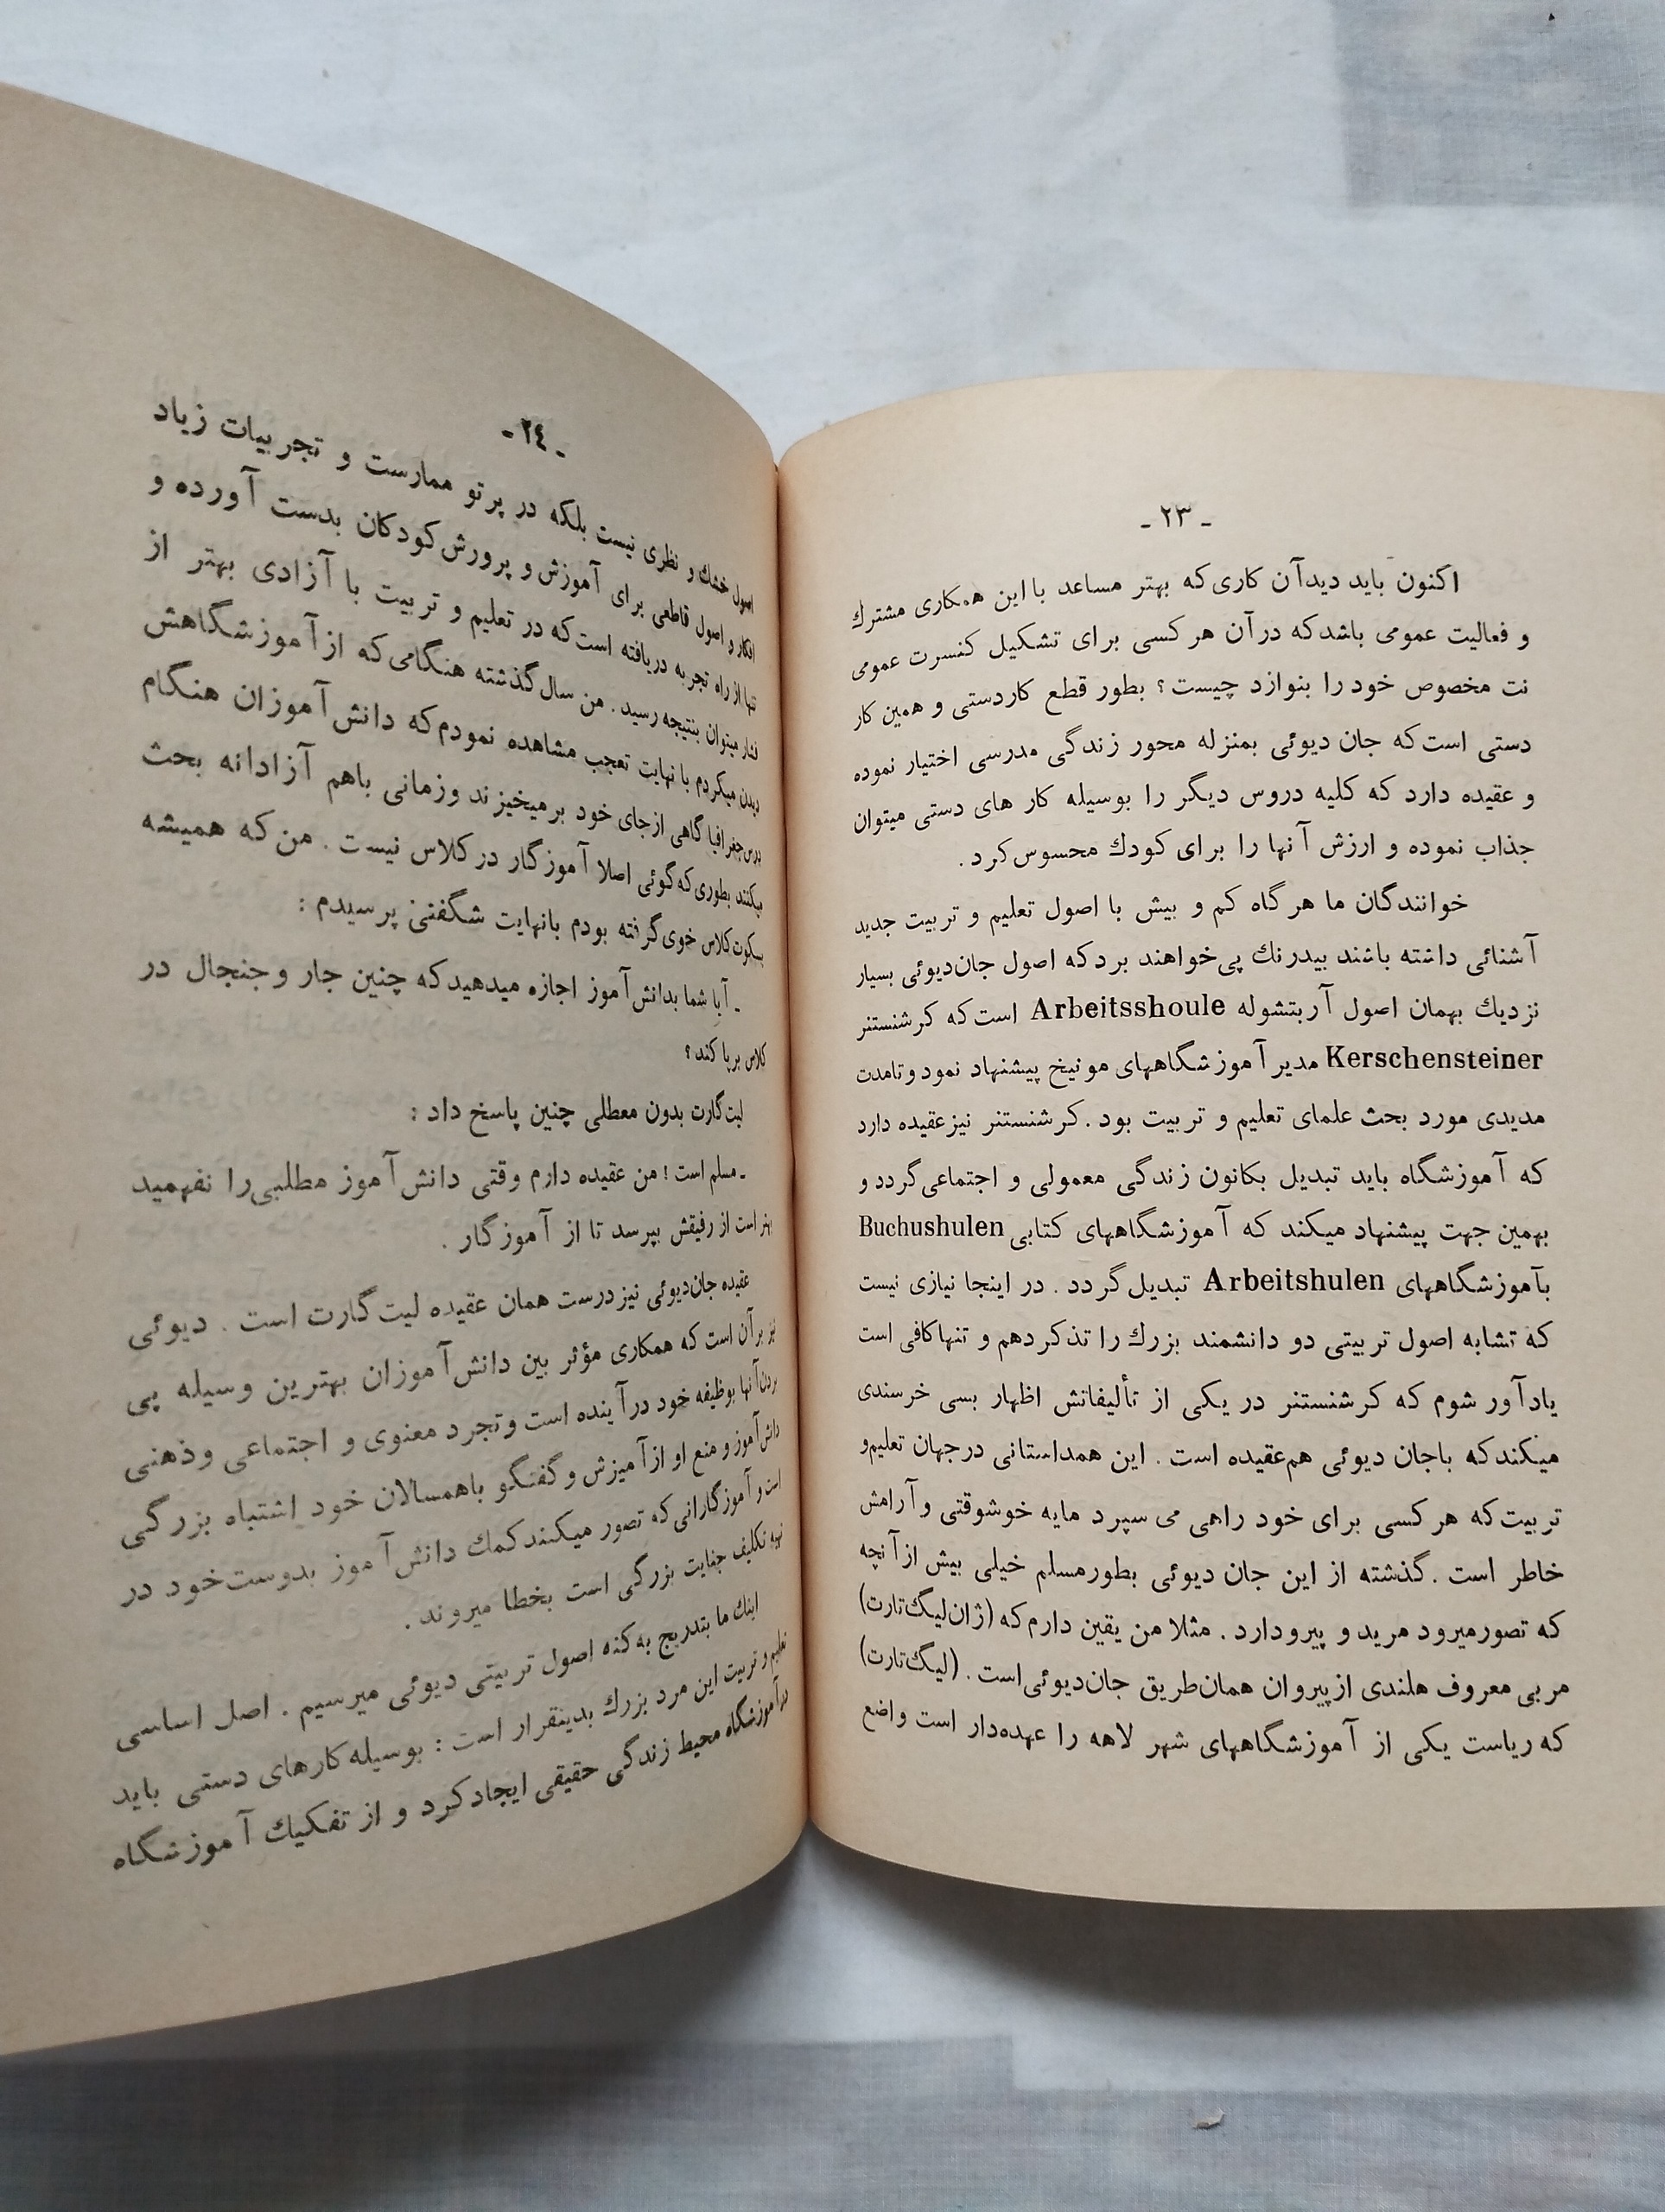 - ۲۳ -
اکنون باید دید آن کاری که بهتر مساعد با این همکاری مشترك
و فعالیت عمومی باشد که در آن هر کسی برای تشکیل کنسرت عمومی
نت مخصوص خود را بنوازد چیست؟ بطور قطع کاردستی و همین کار
دستی است که جان دیوئی بمنزله محور زندگی مدرسی اختیار نموده
و عقیده دارد که کلیه دروس دیگر را بوسیله کار های دستی میتوان
جذاب نموده و ارزش آنها را برای کودك محسوس کرد.
خوانندگان ما هر گاه کم و بیش با اصول تعلیم و تربیت جدید
آشنائی داشته باشند بیدرنك پی خواهند برد که اصول جان دیوئی بسیار
نزدیك بهمان اصول آربتشوله Arbeitsshoule است که کرشنستنر
Kerschensteiner مدیر آموزشگاههای مونیخ پیشنهاد نمود و تامدت
مدیدی مورد بحث علمای تعلیم و تربیت بود. کرشنستنر نیز عقیده دارد
که آموزشگاه باید تبدیل بکانون زندگی معمولی و اجتماعی گردد و
بهمین جهت پیشنهاد میکند که آموزشگاههای کتابی Buchushulen
بآموزشگاههای Arbeitshulen تبدیل گردد. در اینجا نیازی نیست
که تشابه اصول تربیتی دو دانشمند بزرك را تذکر دهم و تنها کافی است
یادآور شوم که کرشنستنر در یکی از تألیفاتش اظهار بسی خرسندی
میکند که باجان دیوئی هم عقیده است. این همداستانی در جهان تعلیم و
تربیت که هر کسی برای خود راهی می سپرد مایه خوشوقتی و آرامش
خاطر است. گذشته از این جان دیوئی بطور مسلم خیلی بیش از آنچه
که تصور میرود مرید و پیرو دارد. مثلا من یقین دارم که (ژان لیگ تارت)
مربی معروف هلندی از پیروان همان طریق جان دیوئی است. (لیگ تارت)
که ریاست یکی از آموزشگاههای شهر لاهه را عهده‌دار است واضع
- ۲٤ -
اصول خشك و نظری نیست بلکه در پرتو ممارست و تجربیات زیاد
افکار و اصول قاطعی برای آموزش و پرورش کودکان بدست آورده و
تنها از راه تجربه دریافته است که در تعلیم و تربیت با آزادی بهتر از
فشار میتوان بنتیجه رسید. من سال گذشته هنگامی که از آموزشگاهش
دیدن میکردم با نهایت تعجب مشاهده نمودم که دانش آموزان هنگام
درس جغرافیا گاهی ازجای خود بر میخیزند وزمانی باهم آزادانه بحث
میکنند بطوری که گوئی اصلا آموزگار در کلاس نیست. من که همیشه
بسکوت کلاس خوی گرفته بودم بانهایت شگفتی پرسیدم:
- آیا شما بدانش آموز اجازه میدهید که چنین جار و جنجال در
کلاس برپا کند؟
لیت گارت بدون معطلی چنین پاسخ داد:
- مسلم است! من عقیده دارم وقتی دانش آموز مطلبی را نفهمید
بهتر است از رفیقش بپرسد تا از آموزگار.
عقیده جان دیوئی نیز درست همان عقیده لیت گارت است. دیوئی
نیز بر آن است که همکاری مؤثر بین دانش آموزان بهترین وسیله پی
بردن آنها بوظیفه خود در آینده است و تجرد معنوی و اجتماعی و ذهنی
دانش آموز و منع او از آمیزش و گفتگو باهمسالان خود اشتباه بزرگی
است و آموزگارانی که تصور میکنند کمك دانش آموز بدوست خود در
تهیه تکلیف جنایت بزرگی است بخطا میروند.
اینك ما بتدریج به کنه اصول تربیتی دیوئی میرسیم. اصل اساسی
تعلیم و تربیت این مرد بزرك بدینقرار است: بوسیله کارهای دستی باید
در آموزشگاه محیط زندگی حقیقی ایجاد کرد و از تفکیك آموزشگاه